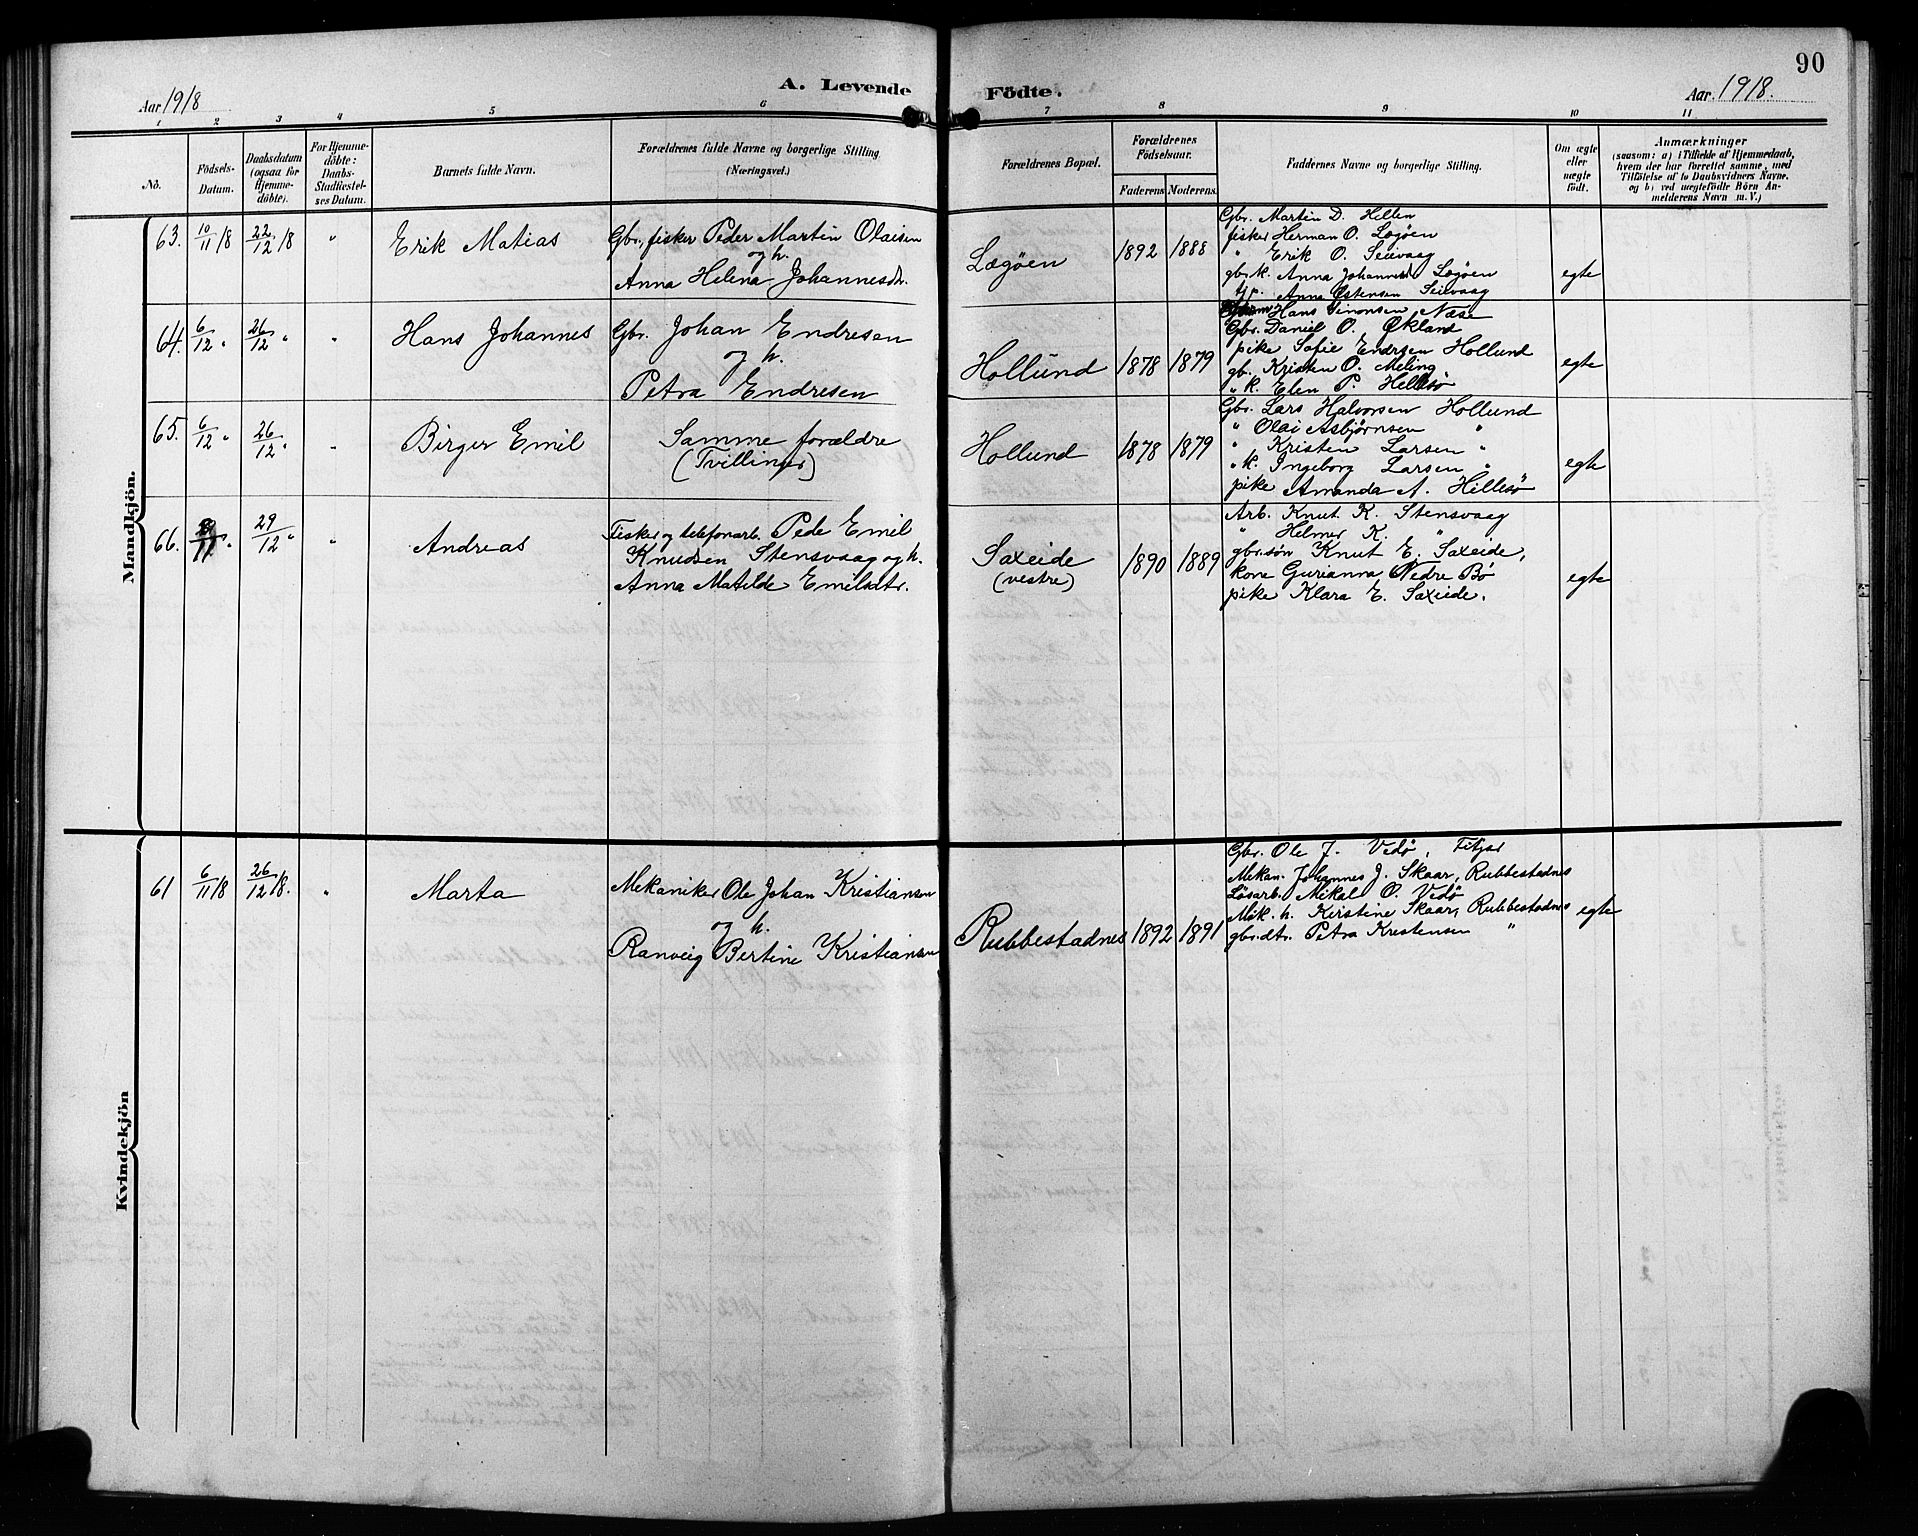 90
A. Levende Födte.
Aar 1918
Aar 1918.
1 2 3 4 5 6 7 8 9 10 11
No.
Födsels-Datum.
Daabsdatum (ogsaa for Hjemme-døbte).
For Hjemme-døbte: Daabs-Stadfæstel-ses Datum.
Barnets fulde Navn.
Forældrenes fulde Navne og borgerlige Stilling (Næringsvei.)
Forældrenes Bopæl.
Forældrenes Födselsaar.
Faderens Moderens.
Faddernes Navne og borgerlige Stilling.
Om ægte eller uægte født.
Anmærkninger
(saasom: a) i Tilfælde af Hjemmedaab,
hvem der har forrettet samme, med
Tilföielse af to Daabsvidners Navne.
og b) ved uægtefödte Börn An-
melderens Navn m. V.)
Mandkjön.
63. 10/11/8 22/12/8 " Erik Matias
Gbr., fisker Peder Martin Olaisen
og h.
Anna Helena Johannesdtr.
Lægöen 1892 1888
Gbr. Martin D. Hellen
fisker Herman O. Lægöen
" Erik O. Seievaag
gbr.k. Anna Johannesd. Lægöen
tjp. Anna Østensen Seievaag
egte
64. 6/12 " 26/12 " " Hans Johannes
Gbr. Johan Endresen
og h.
Petra Endresen
Hollund 1878 1879
Hans Simonsen Næse
Gbr. Daniel O. Økland
pike Sofie Endresen Hollund
gb. Kristen O. Meling
" k. Elen P. Hellesö
egte
65. 6/12 " 26/12 " " Birger Emil
Samme forældre
(Tvillinger)
Hollund 1878 1879
Gbr. Lars Halvorsen Hollund
" Olai Asbjørnsen "
" Kristen Larsen "
" k. Ingeborg Larsen "
pike Amanda A. Hillesö
egte
66. /11 " 29/12 " " Andreas
Fisker og telefonarb. Pede Emil
Knudsen Stensvaag og h.
Anna Matilde Emilsdtr.
Saxeide
(vestre)
1890 1889
Arb. Knut K. Stensvaag
" Helmer K. "
gbr.sön Knut E. Saxeide,
kone Gurianna Nedre Bö
pike Klara E. Saxeide.
egte
Kvindekjön
61 6/11/8 26/12/8. " Marta
Mekaniker Ole Johan Kristiansen
og h.
Ranveig Bertine Kristiansen
Rubbestadnes 1892 1891
Gbr. Ole J. Vedö, Fitjar
Mekan. Johannes J. Skaar, Rubbestadnes
Lösarb. Mikal O. Vedö
Mek. h. Kirstine Skaar, Rubbestadnes
gbr.dtr. Petra Kristensen "
egte